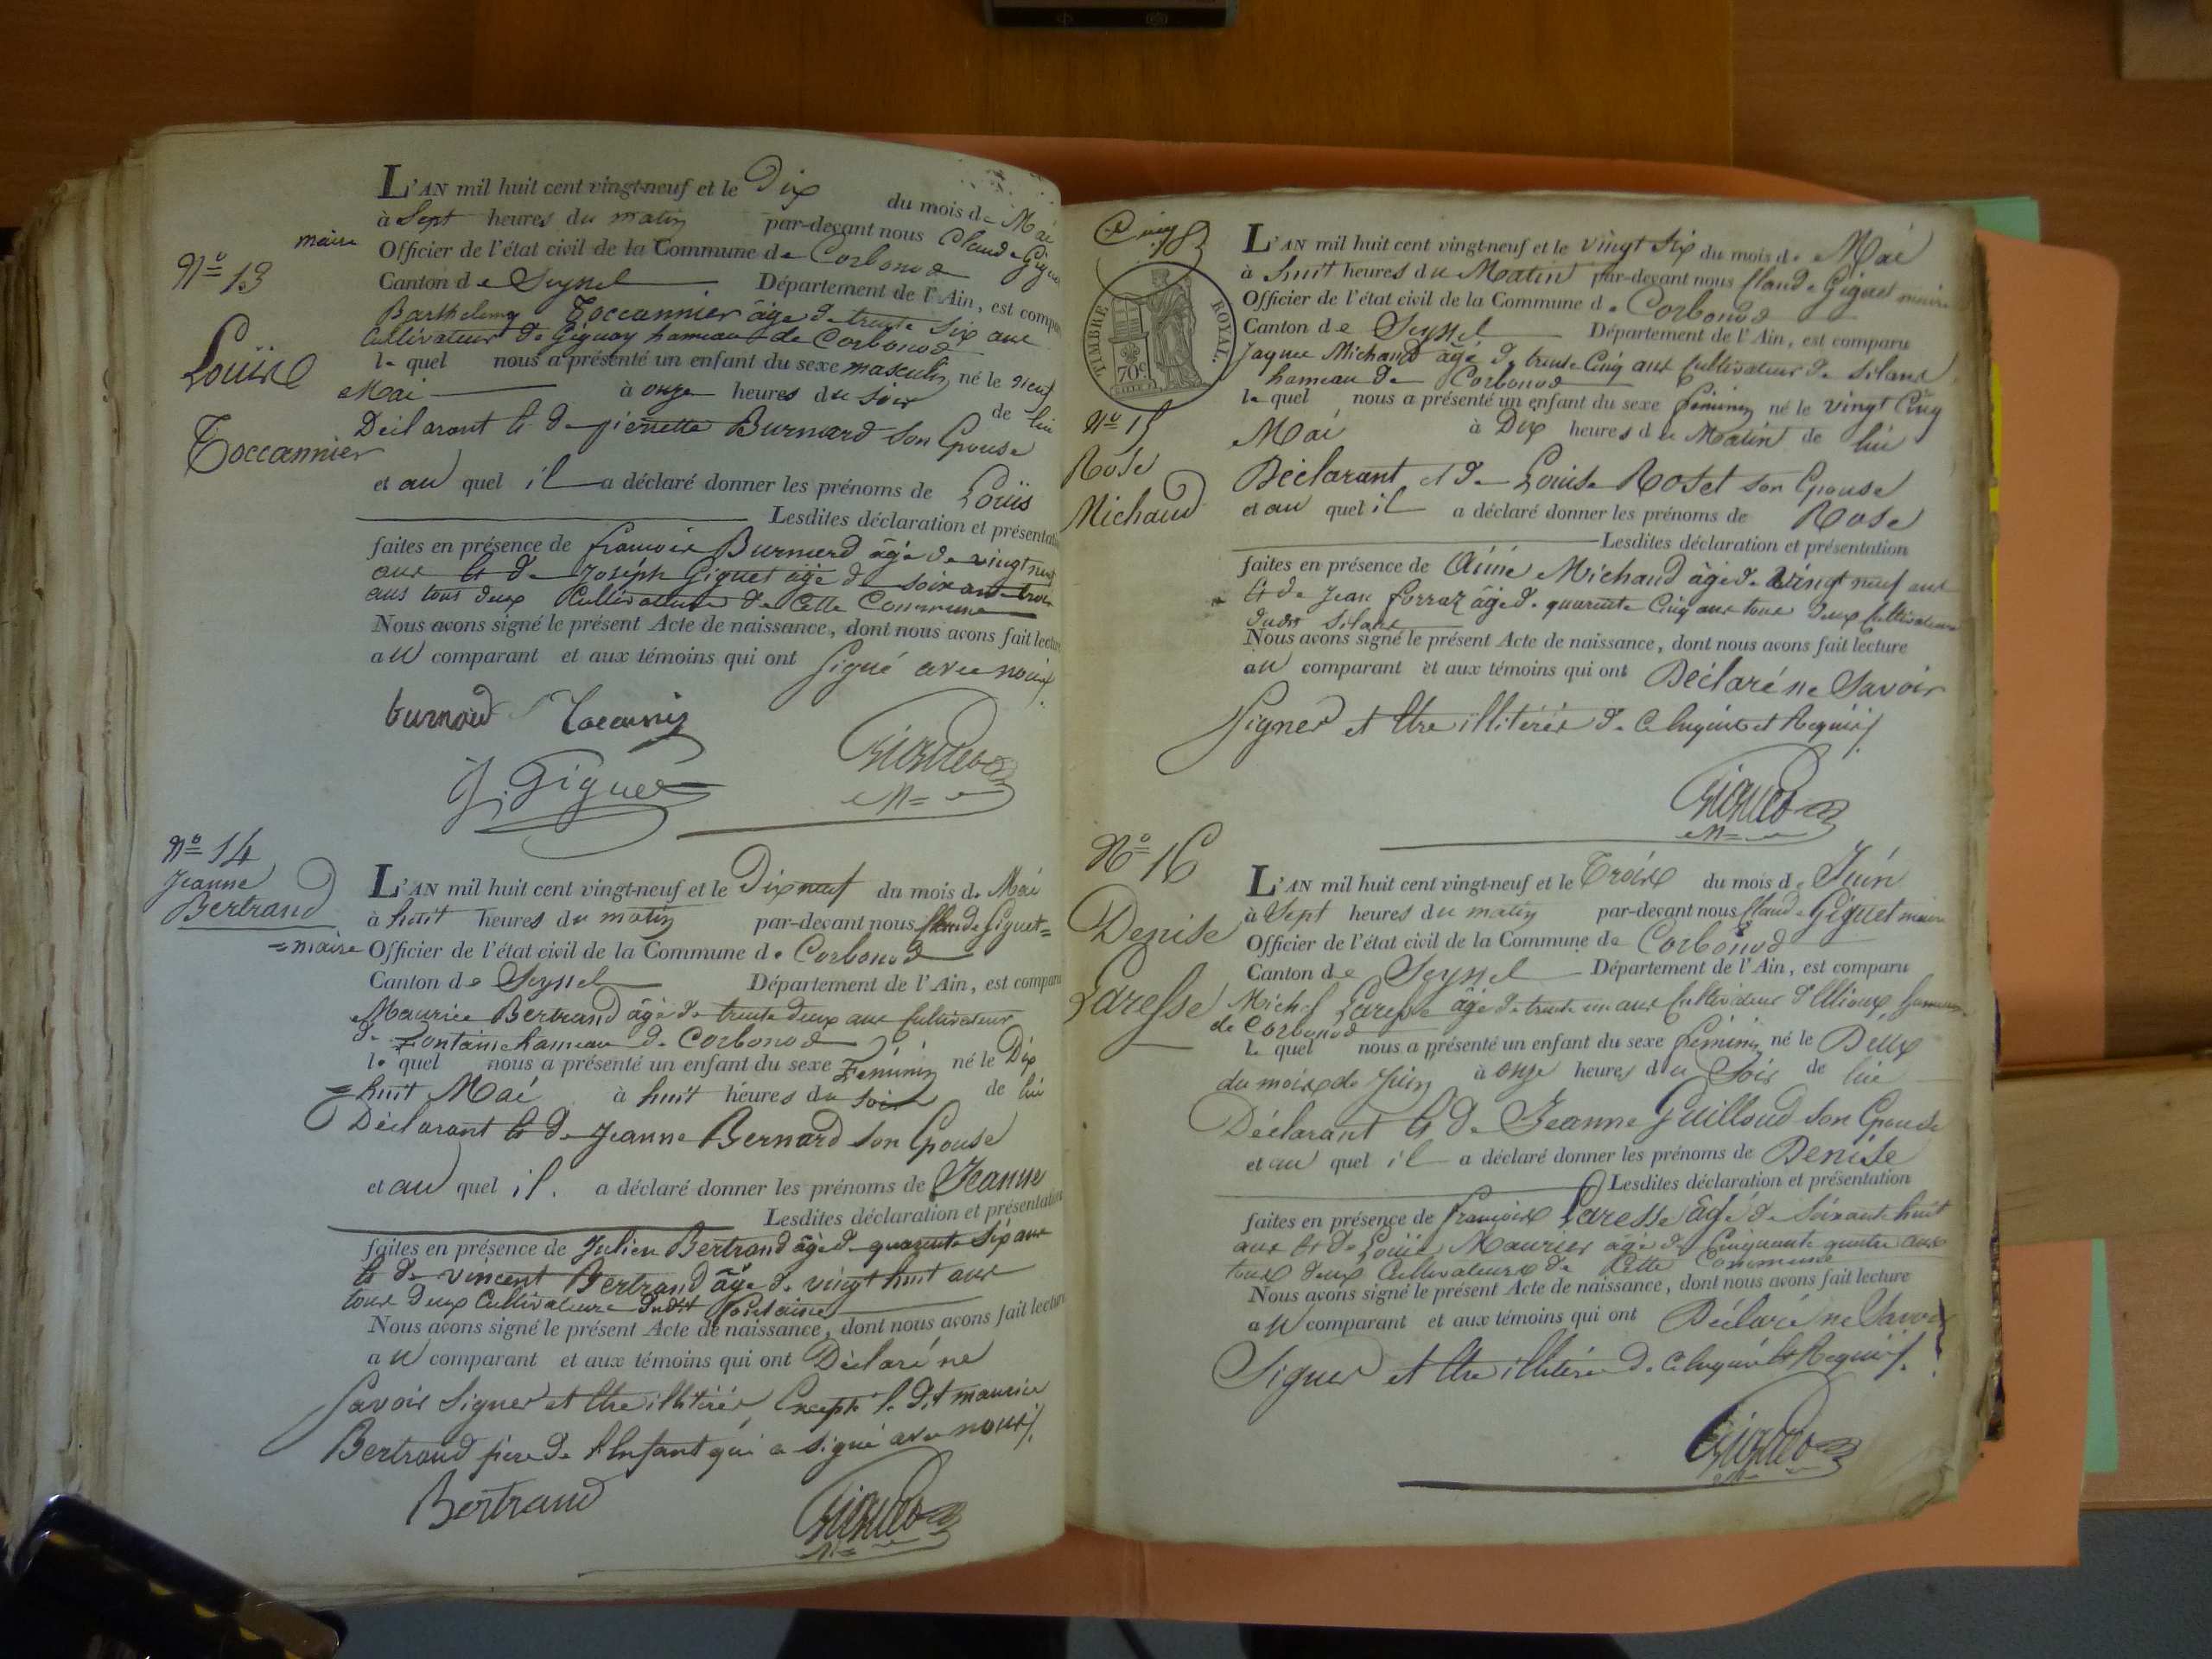 L'AN mil huit cent vingt-neuf et le Dix du mois de Mai
à Sept heures du matin par-devant nous Claude Giguet
maire Officier de l'état civil de la Commune de Corbonod
Nº 13
Canton de Seyssel Département de l'Ain, est comparu
Barthelemy Toccannier âgé de trente six ans
Cultivateur de Gignay hameau de Corbonod
Louise
le quel nous a présenté un enfant du sexe masculin né le neuf
Mai à onze heures du soir de lui
Déclarant et de pierrette Burnard son Epouse
Toccannier
et au quel il a déclaré donner les prénoms de Loüis
Lesdites déclaration et présentation
faites en présence de francoix Burnerd âgé de vingt neuf
ans et de Joséph Giguet âgé de soixante trois
ans tous deux Cultivateurs de Cette Commune
Nous avons signé le présent Acte de naissance, dont nous avons fait lecture
au comparant et aux témoins qui ont Signé avec nous
burnoud Toccanier
J. Giguet
Giguet
M=
Nº 14
Jeanne
Bertrand
L'AN mil huit cent vingt-neuf et le Dix neuf du mois de Mai
à huit heures du matin par-devant nous Claude Giguet=
=maire Officier de l'état civil de la Commune de Corbonod
Canton de Seyssel Département de l'Ain, est comparu
Maurice Bertrand âgé de trente deux ans Cultivateur
de Fontaine hameau de Corbonod
le quel nous a présenté un enfant du sexe Féminin né le Dix
=huit Mai à huit heures du soir de lui
Déclarant et de Jeanne Bernard son Epouse
et au quel il a déclaré donner les prénoms de Jeanne
Lesdites déclaration et présentation
faites en présence de Julien Bertrand âgé de quarente six ans
et de vincent Bertrand âgé de vingt huit ans
tous deux Cultivateurs dudit Fontaine
Nous avons signé le présent Acte de naissance, dont nous avons fait lecture
au comparant et aux témoins qui ont Déclaré ne
savoir signer et être illitérés Excepté le dit maurice
Bertrand père de l'Enfant qui a signé avec nous
Bertrand
Giguet
M=
Cinq
TIMBRE ROYAL.
70c
L'AN mil huit cent vingt-neuf et le vingt six du mois de Mai
à huit heures du Matin par-devant nous Claude Giguet maire
Officier de l'état civil de la Commune de Corbonod
Canton de Seyssel Département de l'Ain, est comparu
Jaques Michaud âgé de trente Cinq ans Cultivateur de Silans
hameau de Corbonod
le quel nous a présenté un enfant du sexe féminin né le vingt Cinq
Nº 15
Mai à Dix heures du Matin de lui
Rose
Michaud
Déclarant et de Louise Roset son Epouse
et au quel il a déclaré donner les prénoms de Rose
Lesdites déclaration et présentation
faites en présence de Aimé Michaud âgé de vingt neuf ans
et de Jean forraz âgé de quarente Cinq ans tous deux Cultivateurs
dudit Silans
Nous avons signé le présent Acte de naissance, dont nous avons fait lecture
au comparant et aux témoins qui ont Déclaré ne Savoir
Signer et être illitérés de ce Enquis et Requis
Giguet
M=
Nº 16
Denise
Laresse
L'AN mil huit cent vingt-neuf et le Troix du mois de Juin
à Sept heures du matin par-devant nous Claude Giguet maire
Officier de l'état civil de la Commune de Corbonod
Canton de Seyssel Département de l'Ain, est comparu
Michel Laresse âgé de trente un ans Cultivateur d'Etlioux hameau
de Corbonod
le quel nous a présenté un enfant du sexe féminin né le Deux
du moix de Juin à onze heures du Soir de lui
Déclarant et de Jeanne Guilloud son Epouse
et au quel il a déclaré donner les prénoms de Denise
Lesdites déclaration et présentation
faites en présence de françoix Laresse âgé de soixante huit
ans et de Loüis Maurier âgé de Cinquante quatre ans
tous deux Cultivateurs de Cette Commune
Nous avons signé le présent Acte de naissance, dont nous avons fait lecture
au comparant et aux témoins qui ont Déclaré ne Savoir
Signer et être illitérés de ce Enquis et Requis
Giguet